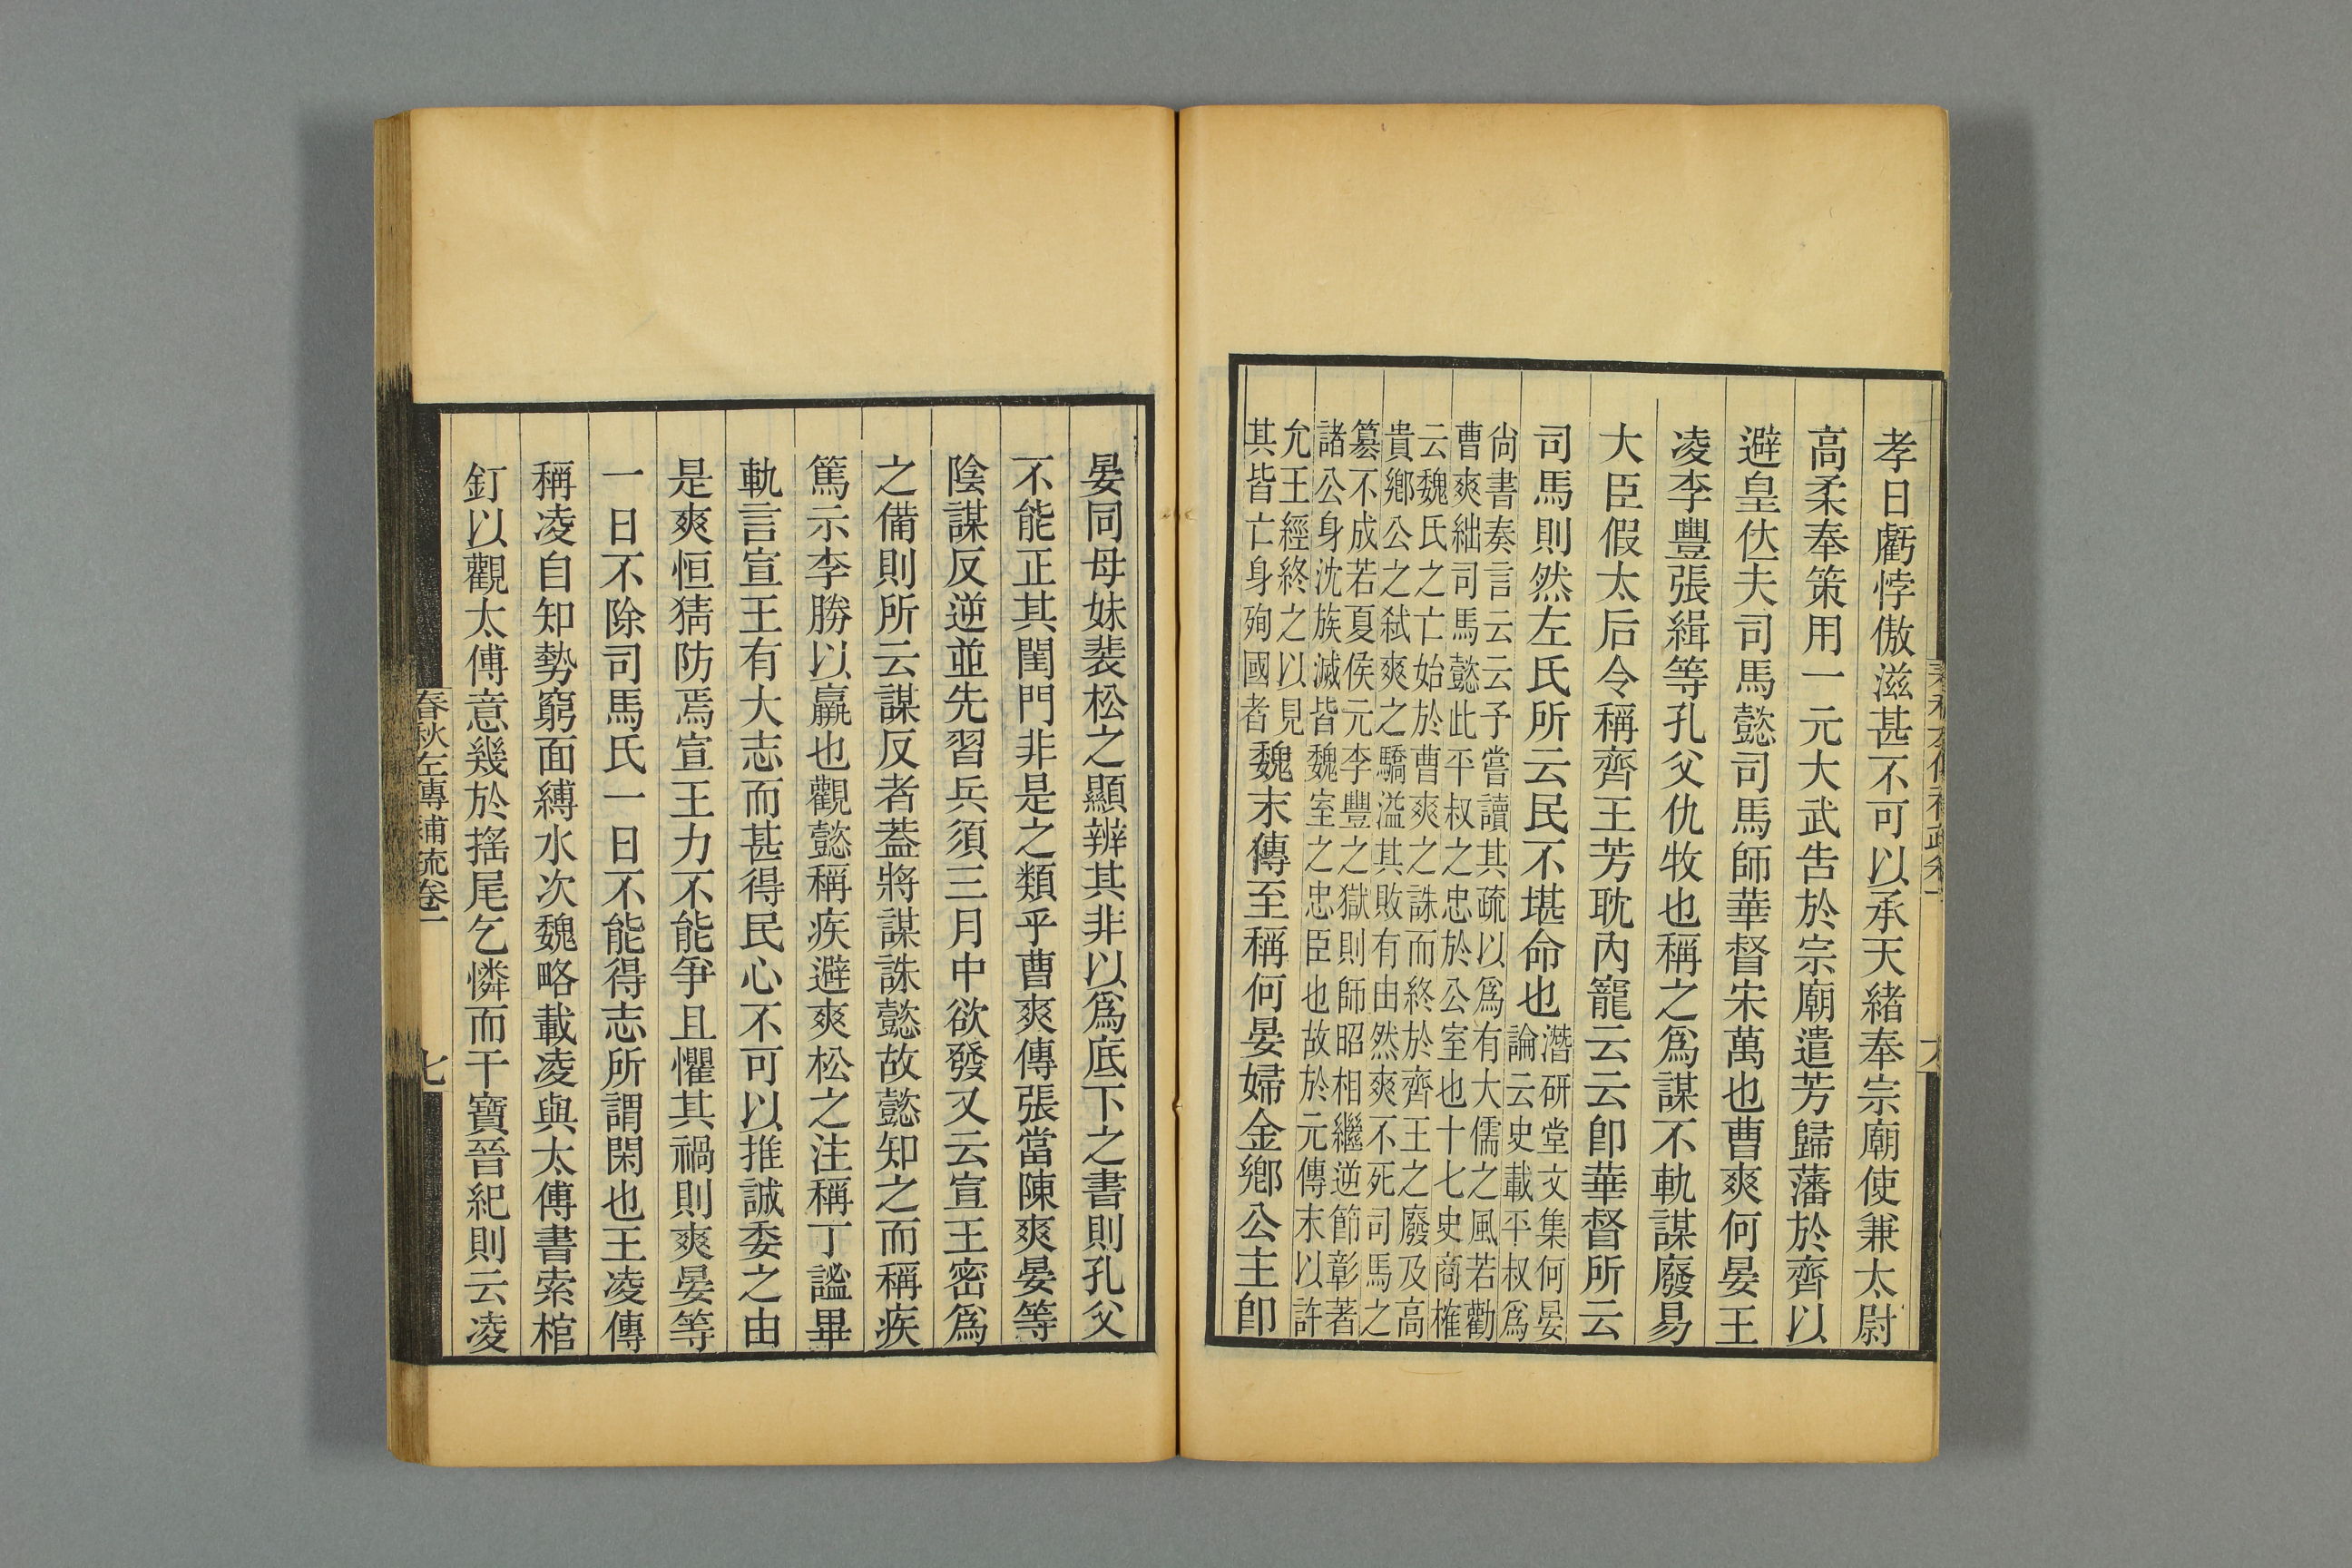 孝日虧悖傲滋甚不可以承天緒奉宗廟使兼太尉
高柔奉策用一元大武告於宗廟遣芳歸藩於齊以
避皇位夫司馬懿司馬師華督宋萬也曹爽何晏王
凌李豐張緝等孔父仇牧也稱之爲謀不軌謀廢易
大臣假太后令稱齊王芳耽內寵云云卽華督所云
司馬則然左氏所云民不堪命也
潛研堂文集何晏
論云史載平叔爲
尙書奏言云云予嘗讀其疏以爲有大儒之風若勸
曹爽絀司馬懿此平叔之忠於公室也十七史商榷
云魏氏之亡始於曹爽之誅而終於齊王之廢及高
貴鄉公之弒爽之驕溢其敗有由然爽不死司馬之
篡不成若夏侯元李豐之獄則師昭相繼逆節彰著
諸公身沈族滅皆魏室之忠臣也故於元傳末以許
允王經終之以見
其皆亡身殉國者
魏末傳至稱何晏婦金鄉公主卽
晏同母妹裴松之顯辨其非以爲底下之書則孔父
不能正其閨門非是之類乎曹爽傳張當陳爽晏等
陰謀反逆並先習兵須三月中欲發又云宣王密爲
之備則所云謀反者蓋將謀誅懿故懿知之而稱疾
篤示李勝以羸也觀懿稱疾避爽松之注稱丁謐畢
軌言宣王有大志而甚得民心不可以推誠委之由
是爽恒猜防焉宣王力不能爭且懼其禍則爽晏等
一日不除司馬氏一日不能得志所謂閑也王凌傳
稱凌自知勢窮面縛水次魏略載凌與太傅書索棺
釘以觀太傅意幾於搖尾乞憐而干寶晉紀則云凌
春秋左傳補疏卷一
七